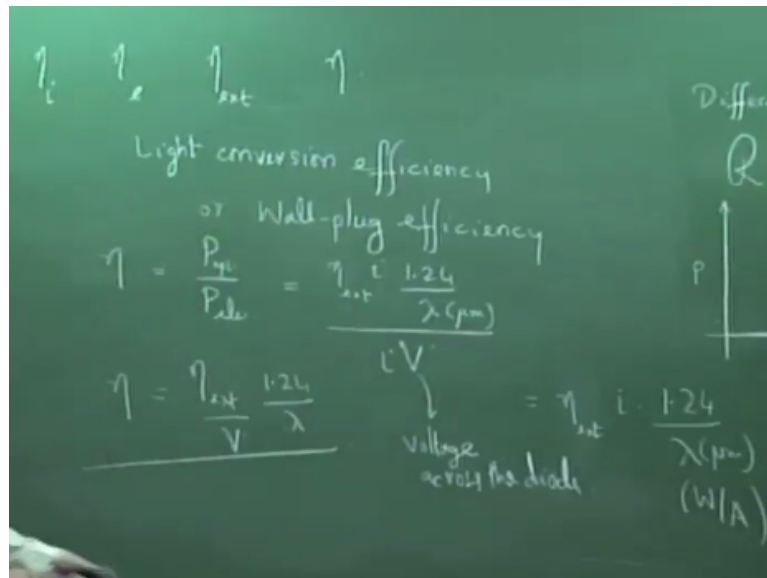 η_i η_e η_ext η.
Light conversion efficiency
or Wall-plug efficiency
η = P_opt / P_ele = η_ext i 1.24 / λ(μm) / i V
η = η_ext / V 1.24 / λ
voltage
across the diode
= η_ext i . 1.24 / λ(μm)
(W/A)
Q
P